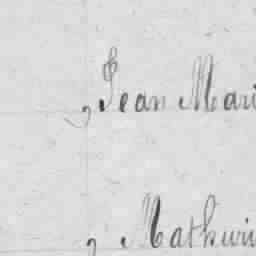 , Jean Mari
, Mathuri